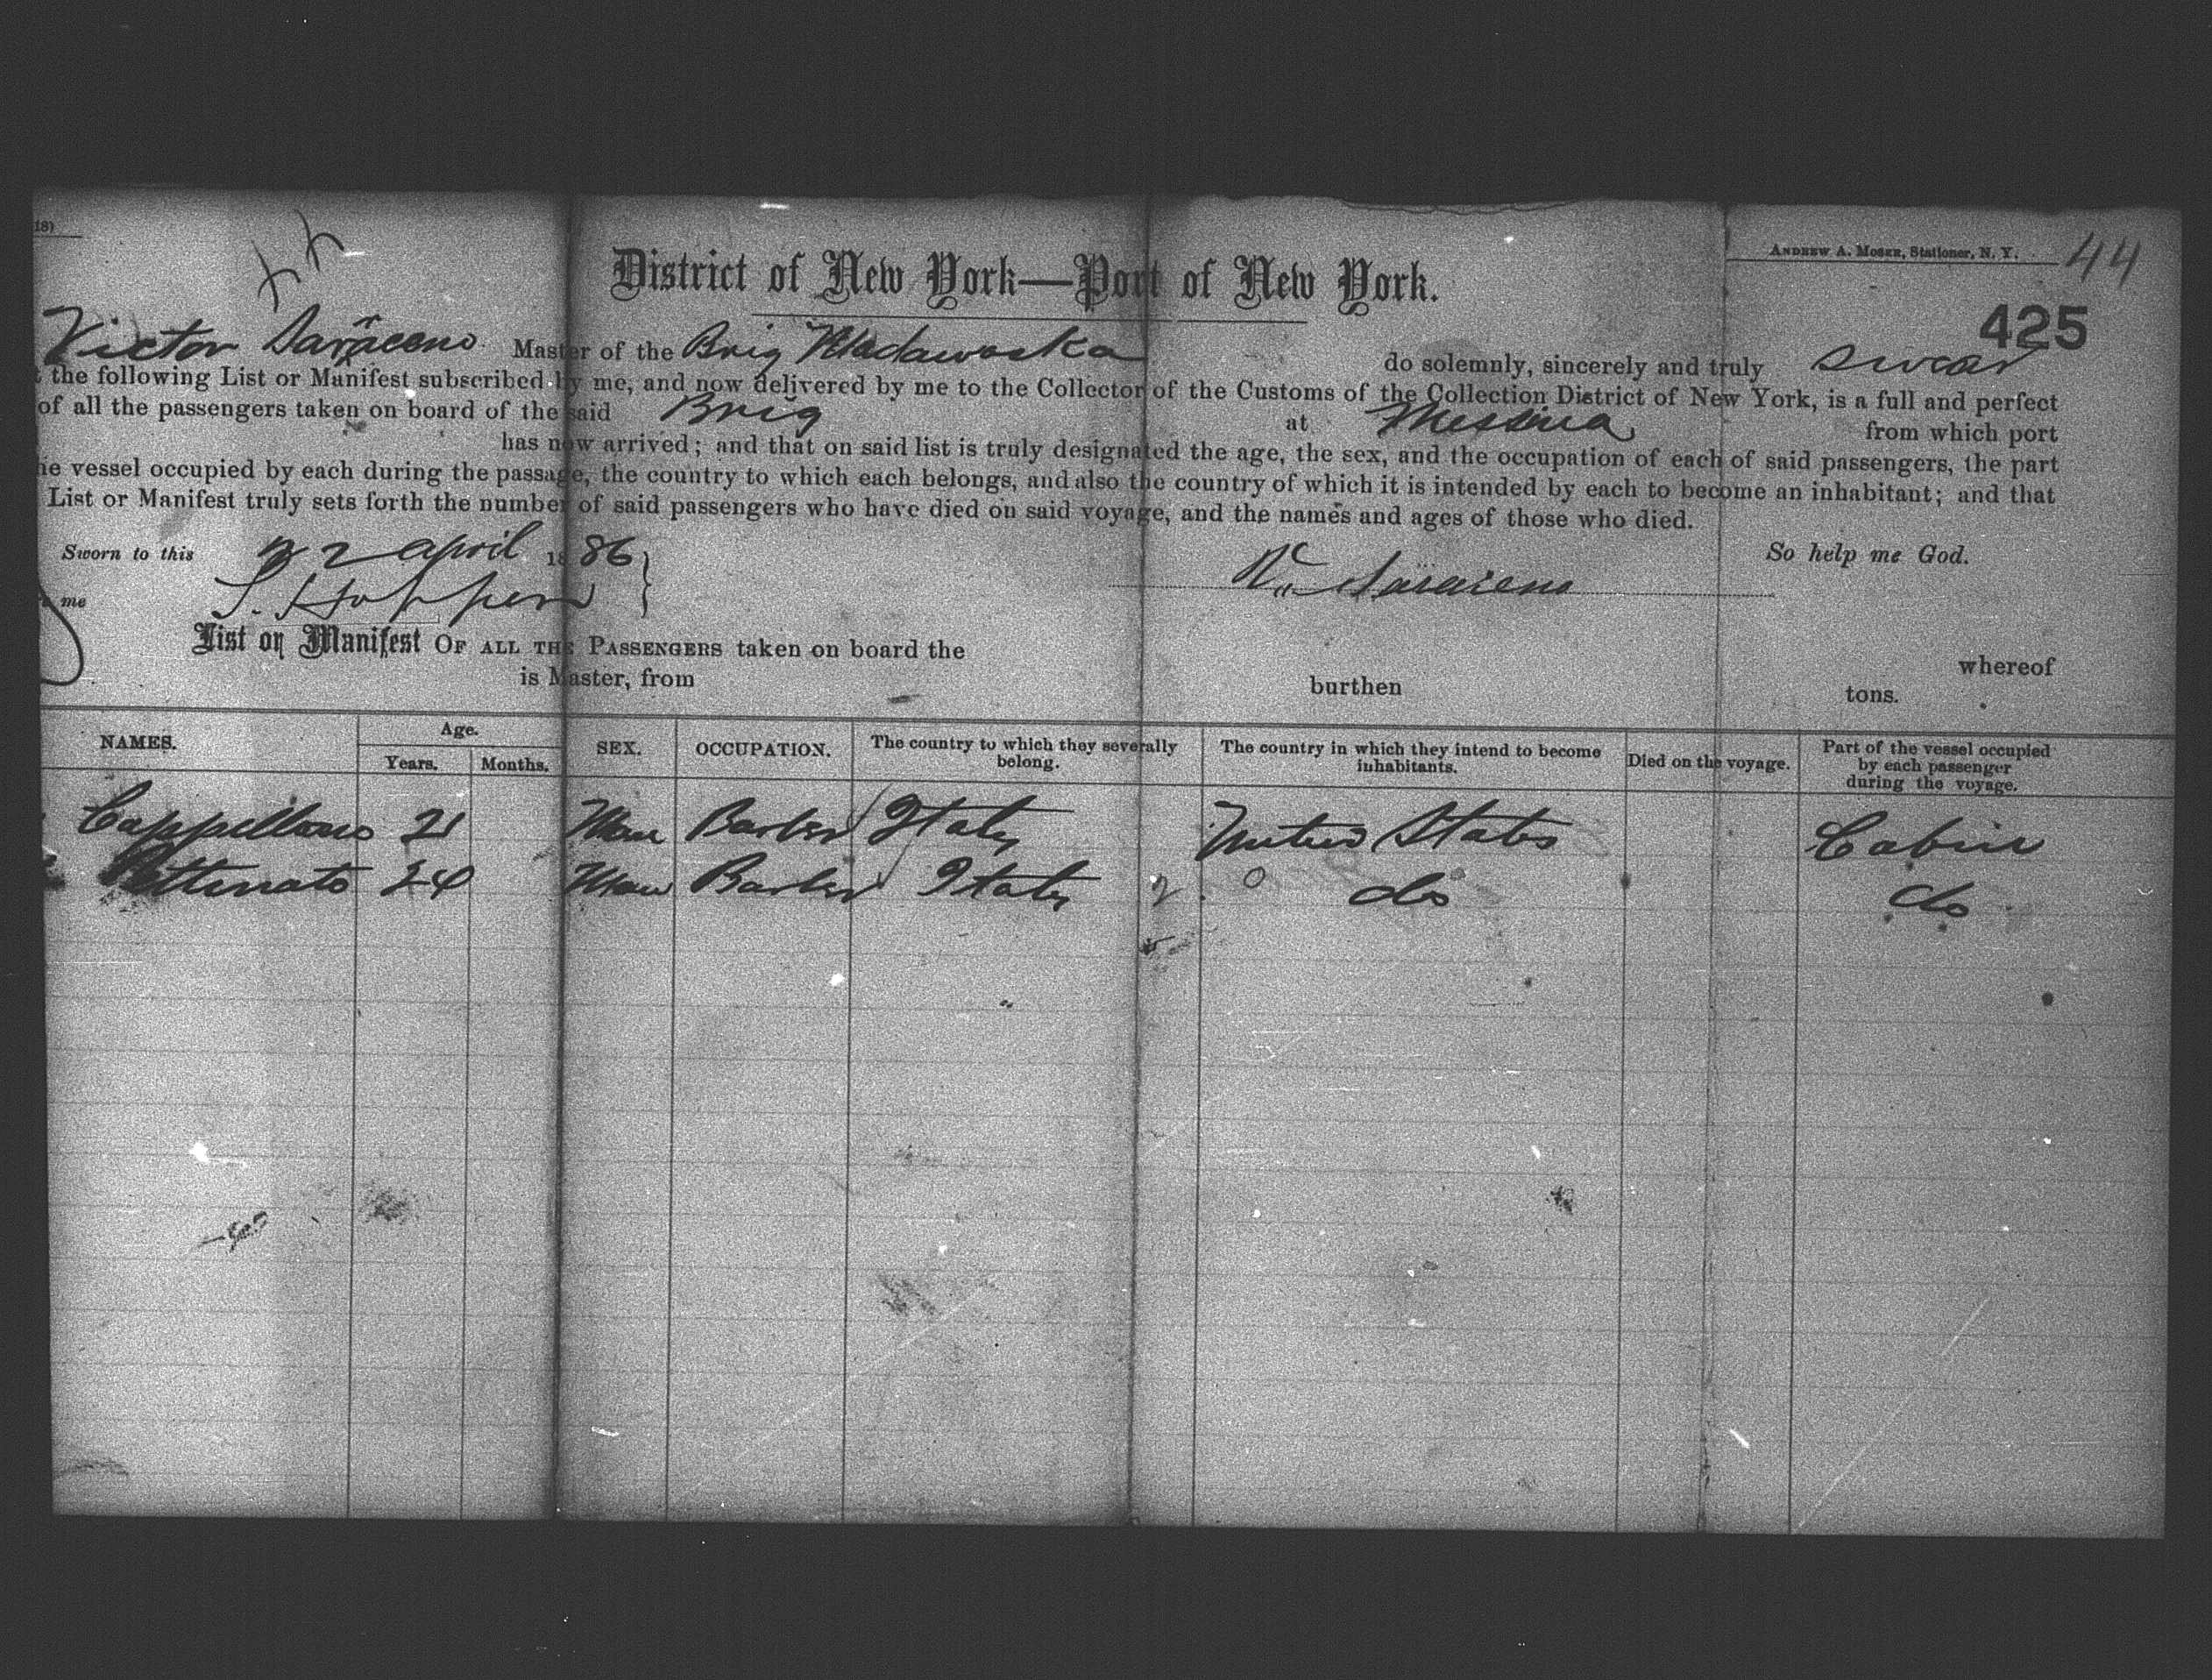 18)
44
ANDREW A. MOSER, Stationer, N. Y.
44
District of New York—Port of New York.
425
Victor Saraceno Master of the Brig Madawaska do solemnly, sincerely and truly swear
the following List or Manifest subscribed by me, and now delivered by me to the Collector of the Customs of the Collection District of New York, is a full and perfect
of all the passengers taken on board of the said Brig at Messina from which port
has now arrived; and that on said list is truly designated the age, the sex, and the occupation of each of said passengers, the part
he vessel occupied by each during the passage, the country to which each belongs, and also the country of which it is intended by each to become an inhabitant; and that
List or Manifest truly sets forth the number of said passengers who have died on said voyage, and the names and ages of those who died.
Sworn to this 22 April 1886 } So help me God.
me Saraceno
List or Manifest OF ALL THE PASSENGERS taken on board the whereof
is Master, from burthen tons.
NAMES. Age. Years. Months. SEX. OCCUPATION. The country to which they severally belong. The country in which they intend to become inhabitants. Died on the voyage. Part of the vessel occupied by each passenger during the voyage.
Cappellano 21 Man Barber Italy United States Cabin
Pettinato 24 Man Barber Italy 2 do do